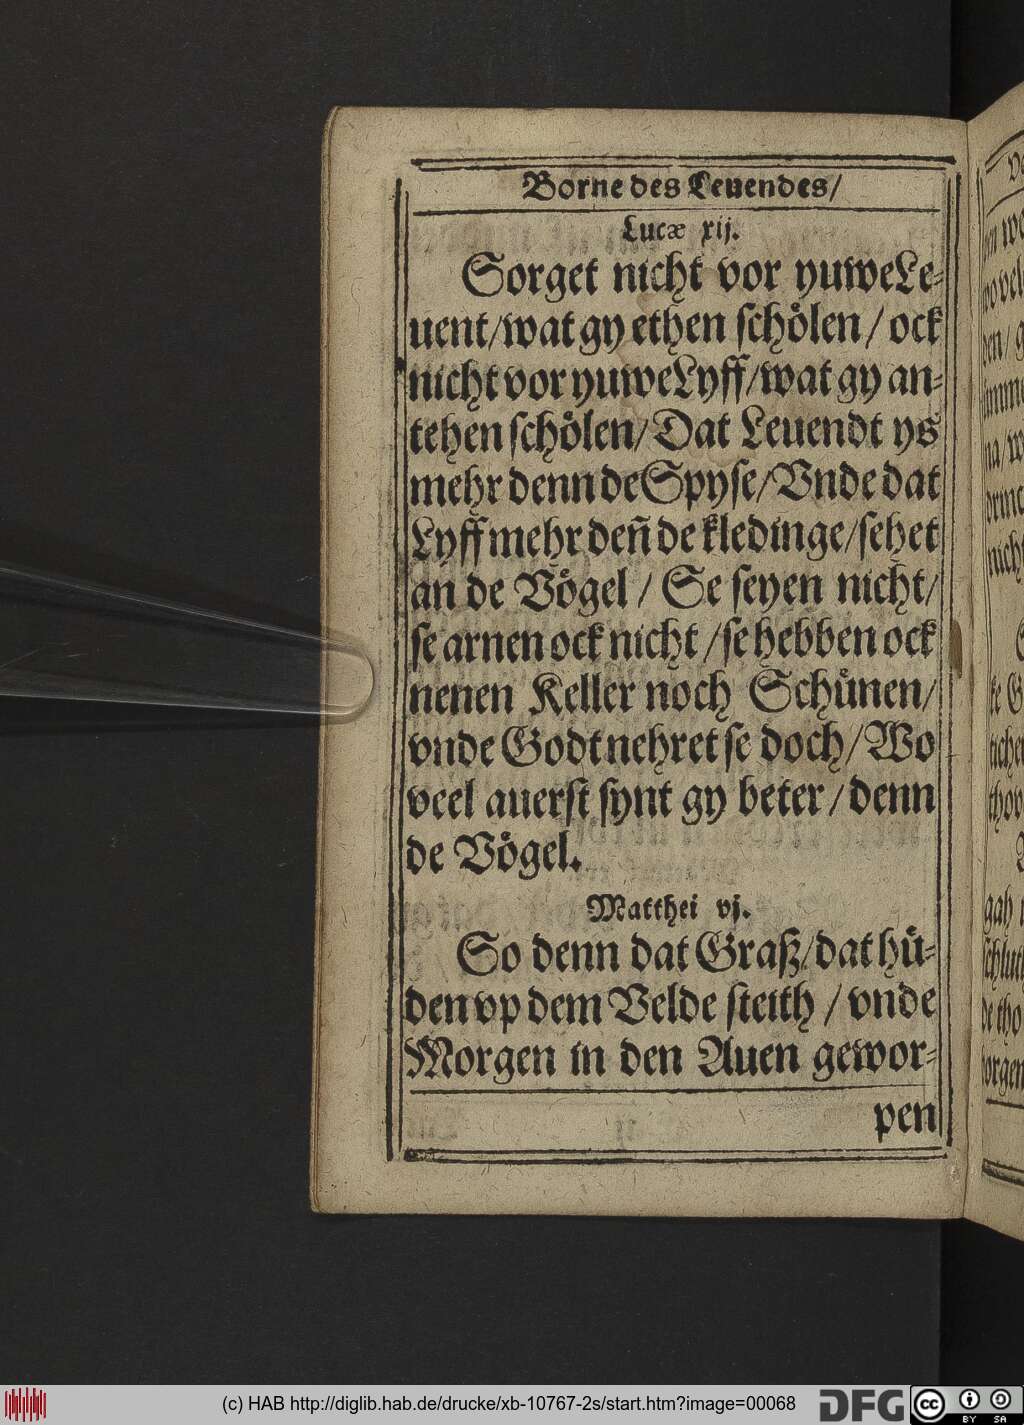 Borne des Leuendes/
Lucæ xij.
Sorget nicht vor yuwe Le-
uent/wat gy ethen schölen/ ock
nicht vor yuwe Lyff/wat gy an-
tehen schölen/ Dat Leuendt ys
mehr denn de Spyse/ Vnde dat
Lyff mehr deñ de kledinge/sehet
an de Vögel/ Se seyen nicht/
se arnen ock nicht/se hebben ock
nenen Keller noch Schünen/
vnde Godt nehret se doch/ Wo
veel auerst synt gy beter/denn
de Vögel.
Matthei vj.
So denn dat Graß/dat hü-
den vp dem Velde steith/ vnde
Morgen in den Auen gewor-
pen
(c) HAB http://diglib.hab.de/drucke/xb-10767-2s/start.htm?image=00068
DFG
cc
BY SA